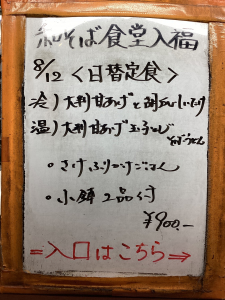 和そば食堂入福
8/12 <日替定食>
冷) 大判甘あげと
温) 大判甘あげ玉子とじ
・さけふりかけごはん
・小鉢2品付
¥900.-
=入口はこちら⇒